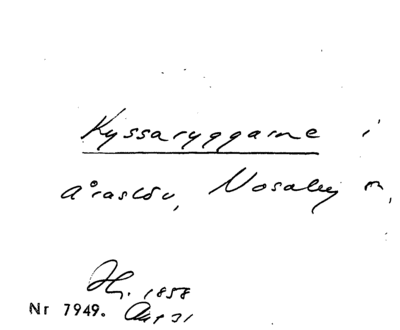 Kyssaryggarne i
Åraslöv, Nosaby sn,
Hg. 1858
Nr 7949. Aug 31